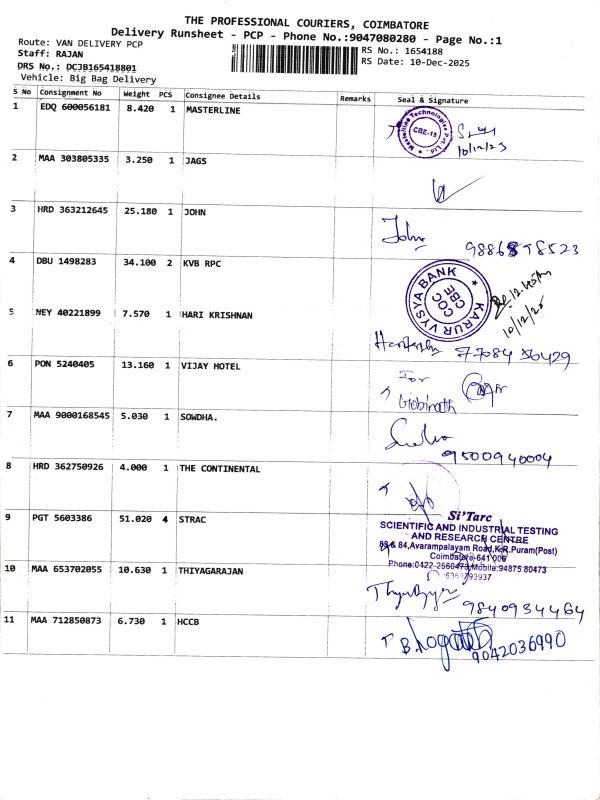 THE PROFESSIONAL COURIERS, COIMBATORE
Delivery Runsheet - PCP - Phone No.:9047080280 - Page No.:1
Route: VAN DELIVERY PCP
Staff: RAJAN
DRS No.: DCJB165418801
Vehicle: Big Bag Delivery
RS No.: 1654188
RS Date: 10-Dec-2025
S No Consignment No Weight PCS Consignee Details Remarks Seal & Signature
1 EDQ 600056181 8.420 1 MASTERLINE
Masterline Technologies Pvt. Ltd. CBE-18
2 MAA 303805335 3.250 1 JAGS
3 HRD 363212645 25.180 1 JOHN
John
4 DBU 1498283 34.100 2 KVB RPC
KARUR VYSYA BANK
COC
CBE
10/12/25
5 NEY 40221899 7.570 1 HARI KRISHNAN
6 PON 5240405 13.160 1 VIJAY HOTEL
For
Gobinath
7 MAA 9000168545 5.030 1 SOWDHA.
9500940004
8 HRD 362750926 4.000 1 THE CONTINENTAL
9 PGT 5603386 51.020 4 STRAC
Si'Tarc
SCIENTIFIC AND INDUSTRIAL TESTING
AND RESEARCH CENTRE
83 & 84,Avarampalayam Road,K.R.Puram(Post)
Coimbatore-641 006
Phone:0422-2560473,Mobile:94875 80473
10 MAA 653702055 10.630 1 THIYAGARAJAN
9840934464
11 MAA 712850873 6.730 1 HCCB
9042036990